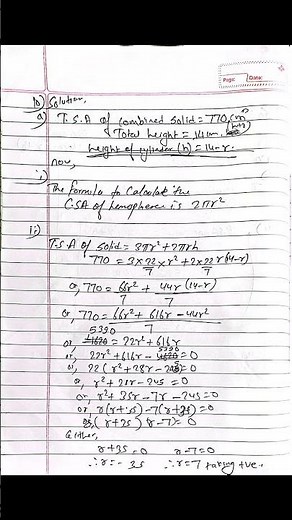 Page: Date:
10) Solution,
a) T.S.A of combined solid = 770 cm²
Total height = 14 cm (h+r)
∴ height of cylinder (h) = 14-r.
now,
i)
The formula to calculate the
C.S.A of hemosphere is 2πr²
ii)
T.S.A of solid = 3πr² + 2πrh
770 = 3×22/7 × r² + 2×22/7 r(14-r)
or, 770 = 66r²/7 + 44r(14-r)/7
or, 770 = 66r² + 616r - 44r²/7
or, 5390 = 22r² + 616r
or, 22r² + 616r - 5390 = 0
or, 22(r² + 28r - 245) = 0
or, r² + 28r - 245 = 0
or, r² + 35r - 7r - 245 = 0
or, r(r+35) - 7(r+35) = 0
or, (r+35) (r-7) = 0
Either,
r+35 = 0 r-7 = 0
∴ r = -35 ∴ r = 7 taking +ve.